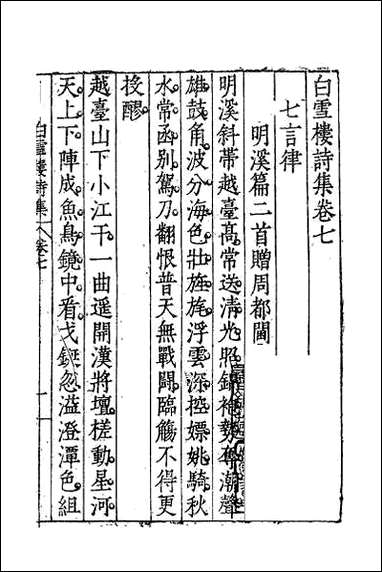 白雪樓詩集卷七
七言律
明溪篇二首贈周都閫
明溪斜帶越臺高。常送清光照錦袍。勢奪潮聲
雄鼓角。波分海色壯旌旄。浮雲深控嫖姚騎。秋
水常函別駕刀。翻恨普天無戰鬪。臨觴不得更
投醪。
越臺山下小江干。一曲遥開漢將壇。槎動星河
天上下。陣成魚鳥鏡中看。戈鋋忽溢澄潭色。組
白雪樓詩集 卷七 一